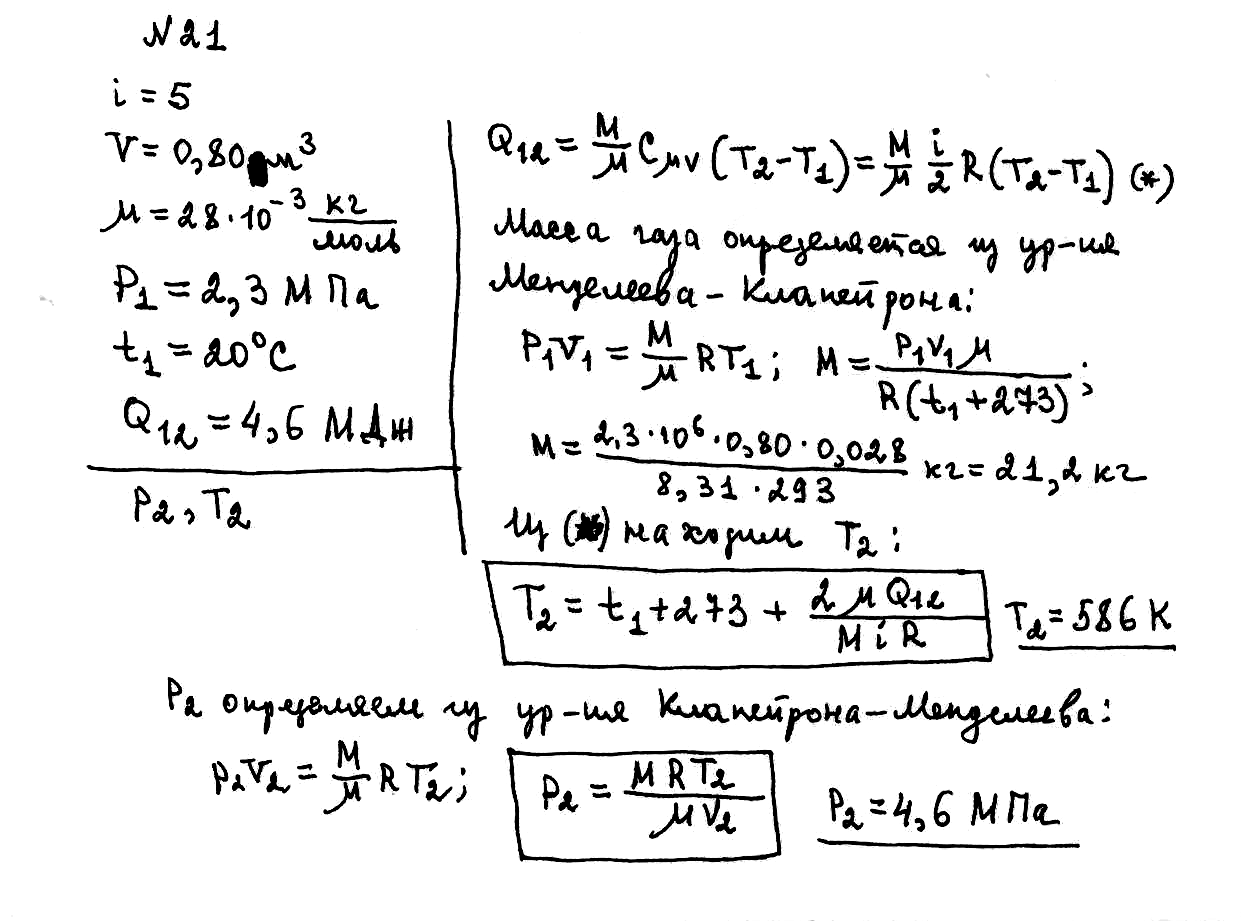 N21
i = 5
V = 0,80 м³
μ = 28·10⁻³ кг/моль
P₁ = 2,3 МПа
t₁ = 20°C
Q₁₂ = 4,6 МДж
P₂, T₂
Q₁₂ = M/μ C_μV (T₂-T₁) = M/μ i/2 R(T₂-T₁) (*)
Масса газа определяется из ур-ия
Менделеева-Клапейрона:
P₁V₁ = M/μ RT₁; M = P₁V₁μ/R(t₁+273);
M = 2,3·10⁶·0,80·0,028/8,31·293 кг = 21,2 кг
Из (*) находим T₂:
T₂ = t₁+273 + 2μQ₁₂/MiR T₂ = 586 K
P₂ определяем из ур-ия Клапейрона-Менделеева:
P₂V₂ = M/μ RT₂; P₂ = MRT₂/μV₂ P₂ = 4,6 МПа